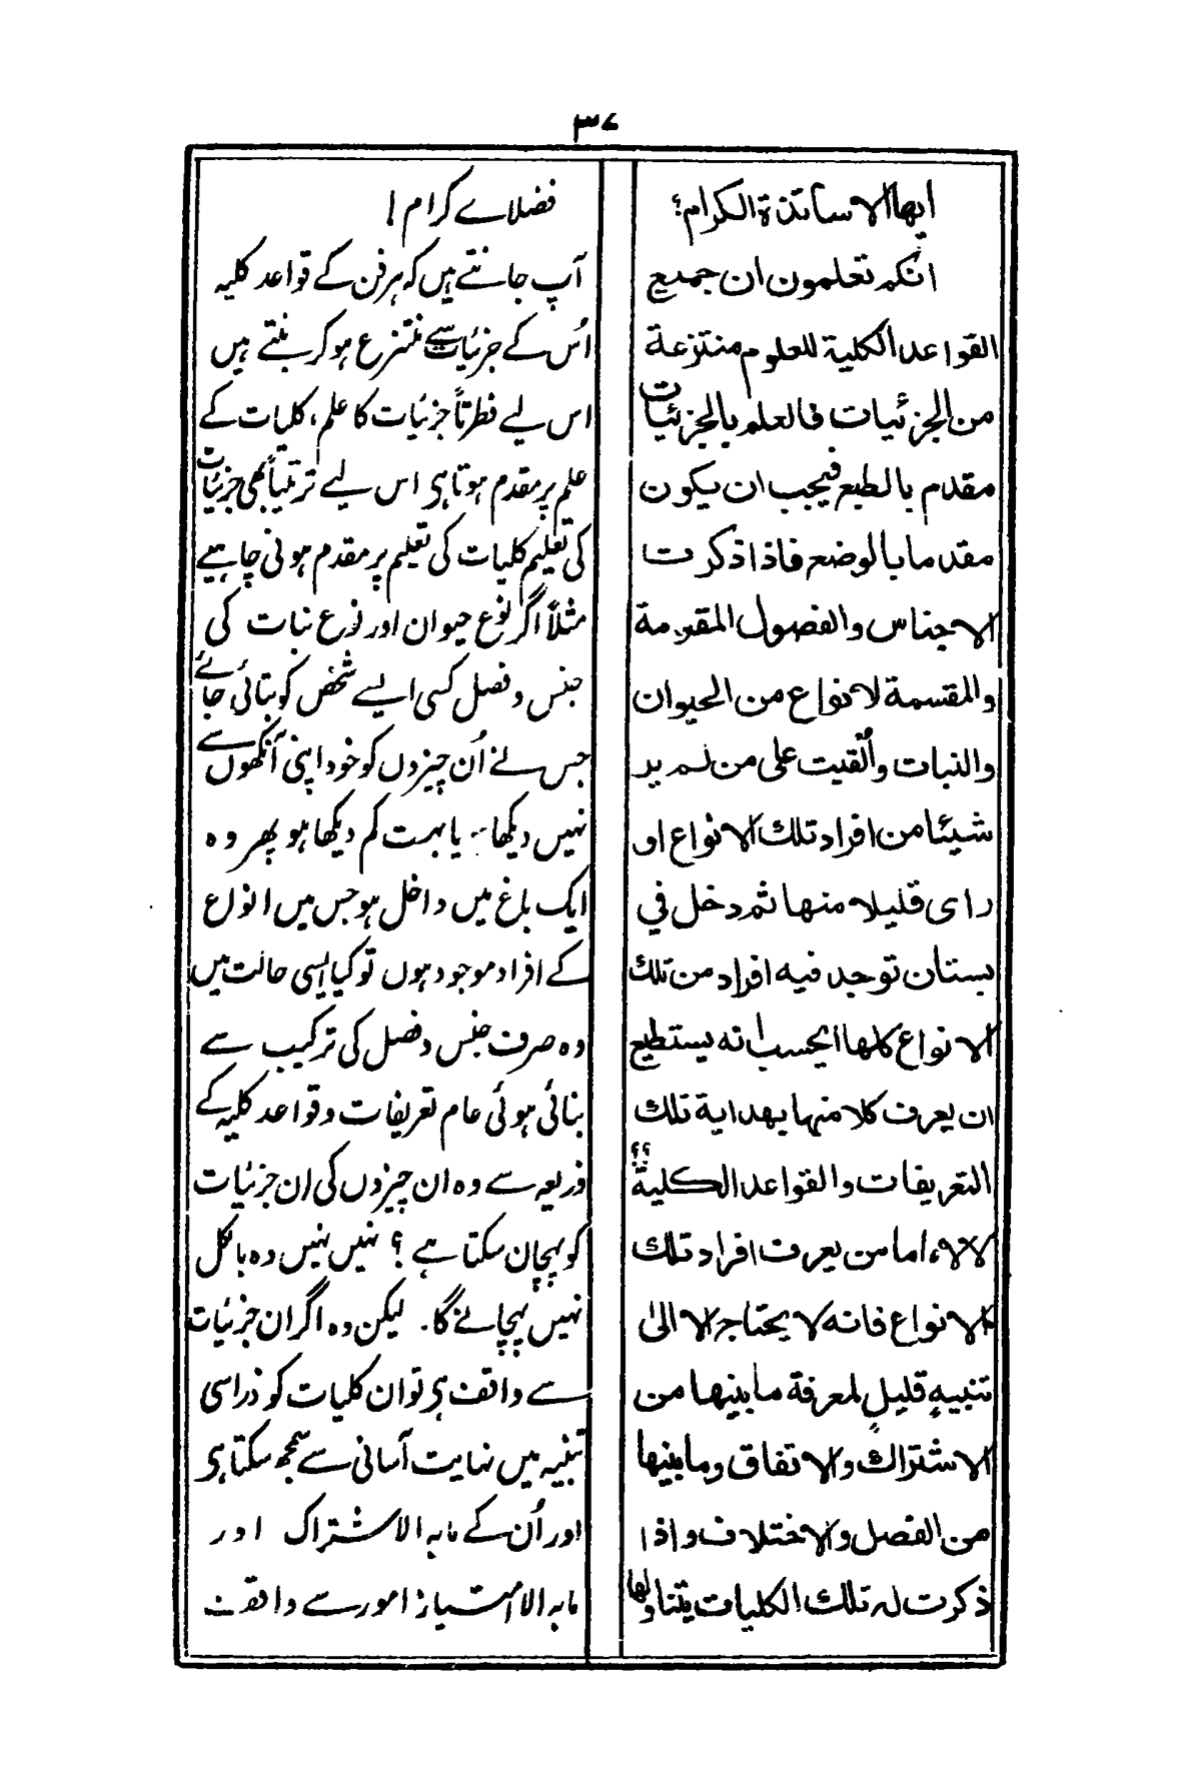 ۳۷
ایها الاساتذة الکرام؛
انکم تعلمون ان جمیع
القواعد الکلیة للعلوم منتزعة
من الجزئیات فالعلم بالجزئیات
مقدم بالطبع فیجب ان یکون
مقدما بالوضع فاذا ذکرت
الاجناس والفصول المقومة
والمقسمة لانواع من الحیوان
والنبات وأُلقیت علی من لم یر
شیئا من افراد تلك الانواع او
رای قلیلا منها ثم دخل فی
بستان توجد فیه افراد من تلك
الانواع کلها أیحسب انه یستطیع
ان یعرف کلا منها بهدایة تلك
التعریفات والقواعد الکلیة؟؟
لالا، اما من یعرف افراد تلك
الانواع فانه لا یحتاج الا الیٰ
تنبیهٍ قلیلٍ لمعرفة مابینها من
الاشتراك والاتفاق ومابینها
من الفصل والاختلاف واذا
ذکرت له تلك الکلیات یتناولها
فضلاے کرام!
آپ جانتے ہیں کہ ہر فن کے قواعد کلیہ
اُس کے جزئیات سے منتزع ہو کر بنتے ہیں
اس لیے فطرتاً جزئیات کا علم، کلیات کے
علم پر مقدم ہوتا ہی اس لیے ترتیباً بھی جزئیات
کی تعلیم کلیات کی تعلیم پر مقدم ہونی چاہیے
مثلاً اگر نوع حیوان اور نوع نبات کی
جنس و فصل کسی ایسے شخص کو بتائی جائے
جس نے اُن چیزوں کو خود اپنی آنکھوں سے
نہیں دیکھا۔ یا بہت کم دیکھا ہو پھر وہ
ایک باغ میں داخل ہو جس میں انواع
کے افراد موجود ہوں تو کیا ایسی حالت میں
وہ صرف جنس و فصل کی ترکیب سے
بنائی ہوئی عام تعریفات و قواعد کلیہ کے
ذریعہ سے وہ ان چیزوں کی ان جزئیات
کو پہچان سکتا ہے؟ نہیں نہیں وہ بالکل
نہیں پہچانے گا۔ لیکن وہ اگر ان جزئیات
سے واقف ہی تو ان کلیات کو ذرا سی
تنبیہ میں نہایت آسانی سے سمجھ سکتا ہی
اور اُن کے مابہ الاشتراک اور
مابہ الامتیاز امور سے واقف